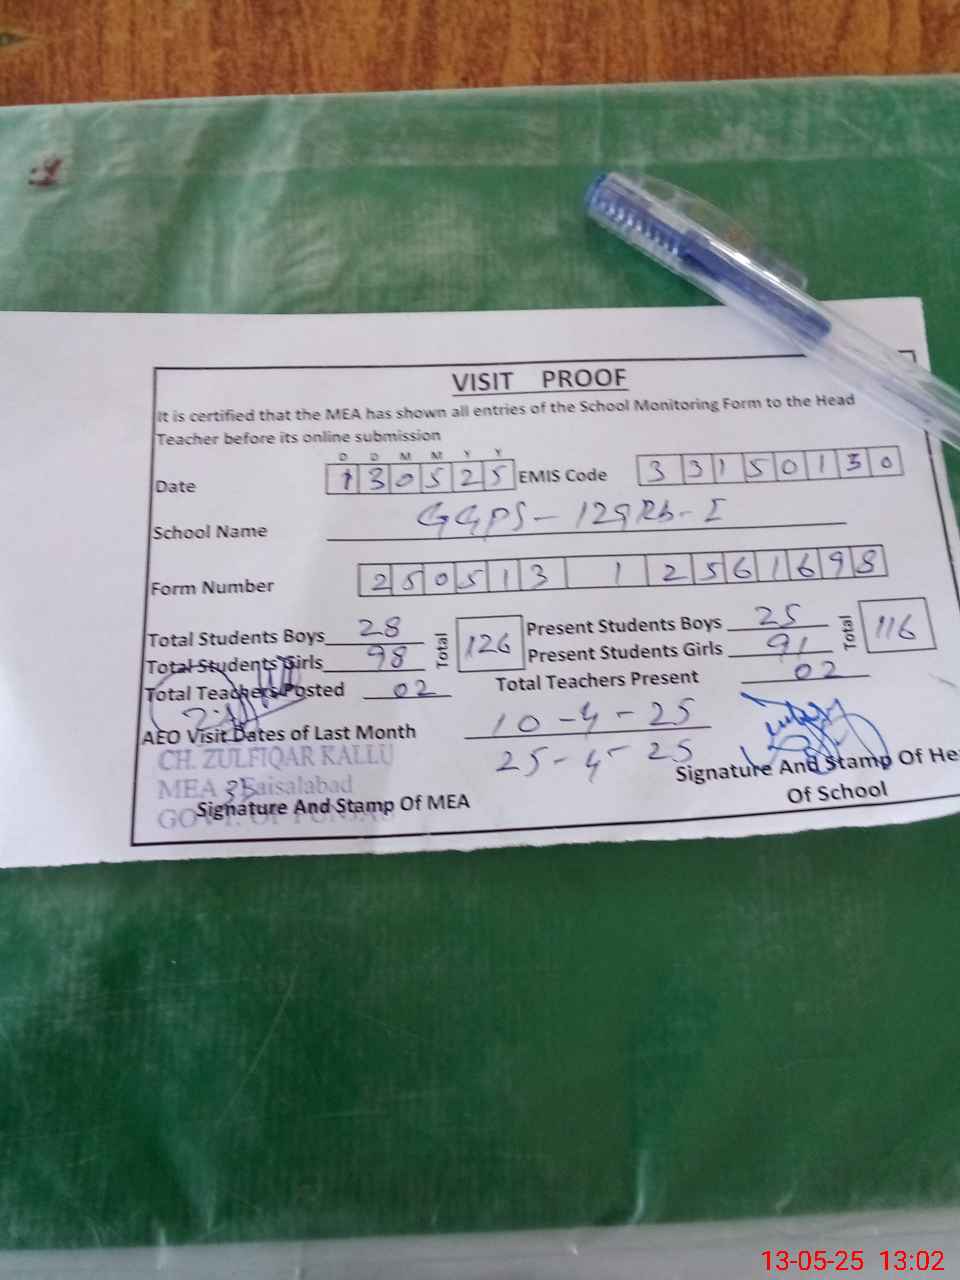 VISIT PROOF
It is certified that the MEA has shown all entries of the School Monitoring Form to the Head
Teacher before its online submission
D D M M Y Y
Date 130525 EMIS Code 33150130
School Name GGPS - 129Rb - I
Form Number 250513 1 2561698
Total Students Boys 28 Total 126 Present Students Boys 25 Total 116
Total Students Girls 98 Present Students Girls 91
Total Teachers Posted 02 Total Teachers Present 02
AEO Visit Dates of Last Month 10-4-25
25-4-25
CH. ZULFIQAR KALLU
MEA 35 Faisalabad
GOVT. OF PUNJAB
Signature And Stamp Of MEA
Signature And Stamp Of He
Of School
13-05-25 13:02